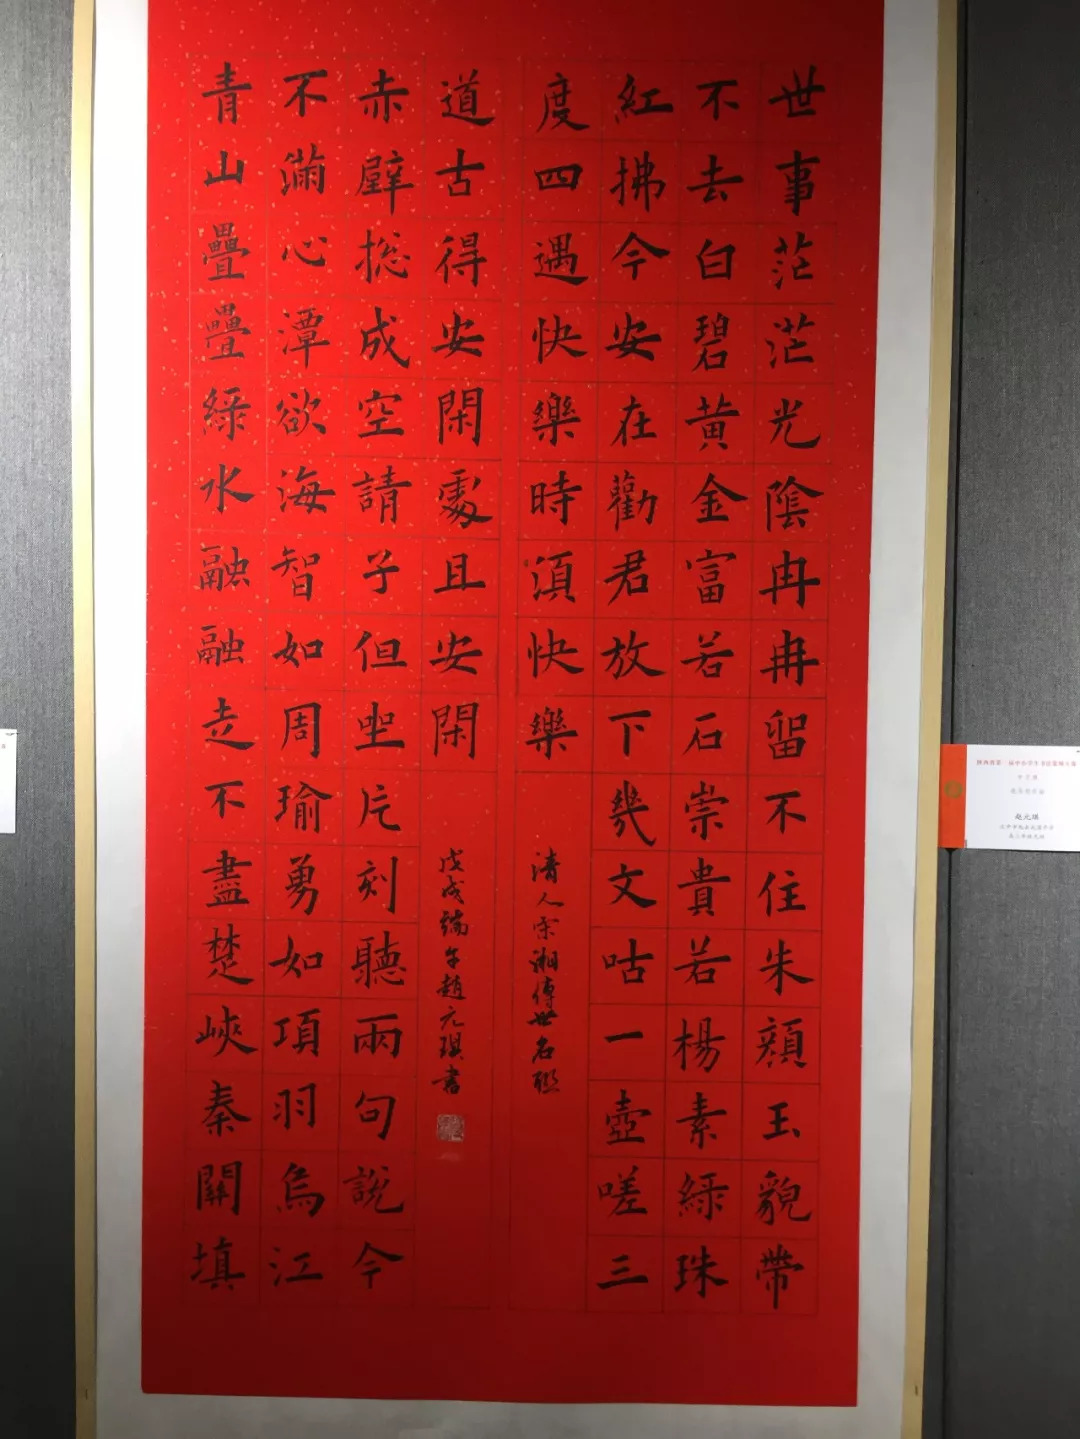 世事茫茫光陰冉冉留不住朱顏玉貌帶
不去白碧黃金富若石崇貴若楊素綠珠
紅拂今安在勸君放下幾文咕一壺嗟三
度四遇快樂時須快樂
清人宋湘傳世名聯
青山疊疊綠水融融走不盡楚峽秦關填
不滿心潭欲海智如周瑜勇如項羽烏江
赤壁揔成空請子但坐片刻聽兩句說今
道古得安閑處且安閑
戊戌端午趙元琪書
陕西省第一届中小学生书法篆刻大赛
赵元琪